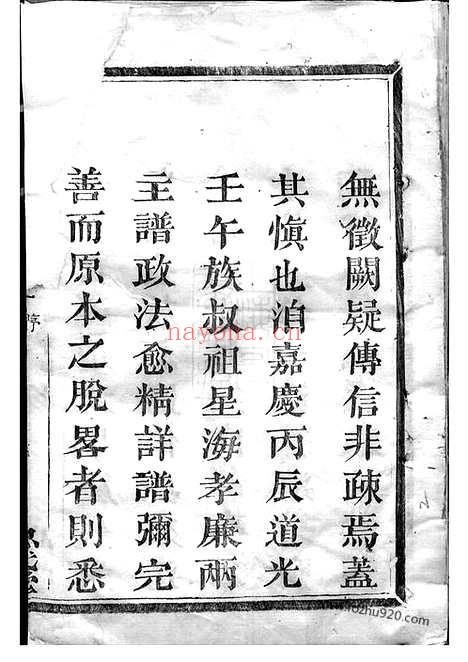 無徵闕疑傳信非疎焉蓋
其愼也洎嘉慶丙辰道光
壬午族叔祖星海孝廉兩
主譜政法愈精詳譜彌完
善而原本之脫畧者則悉
序
nayona.cn